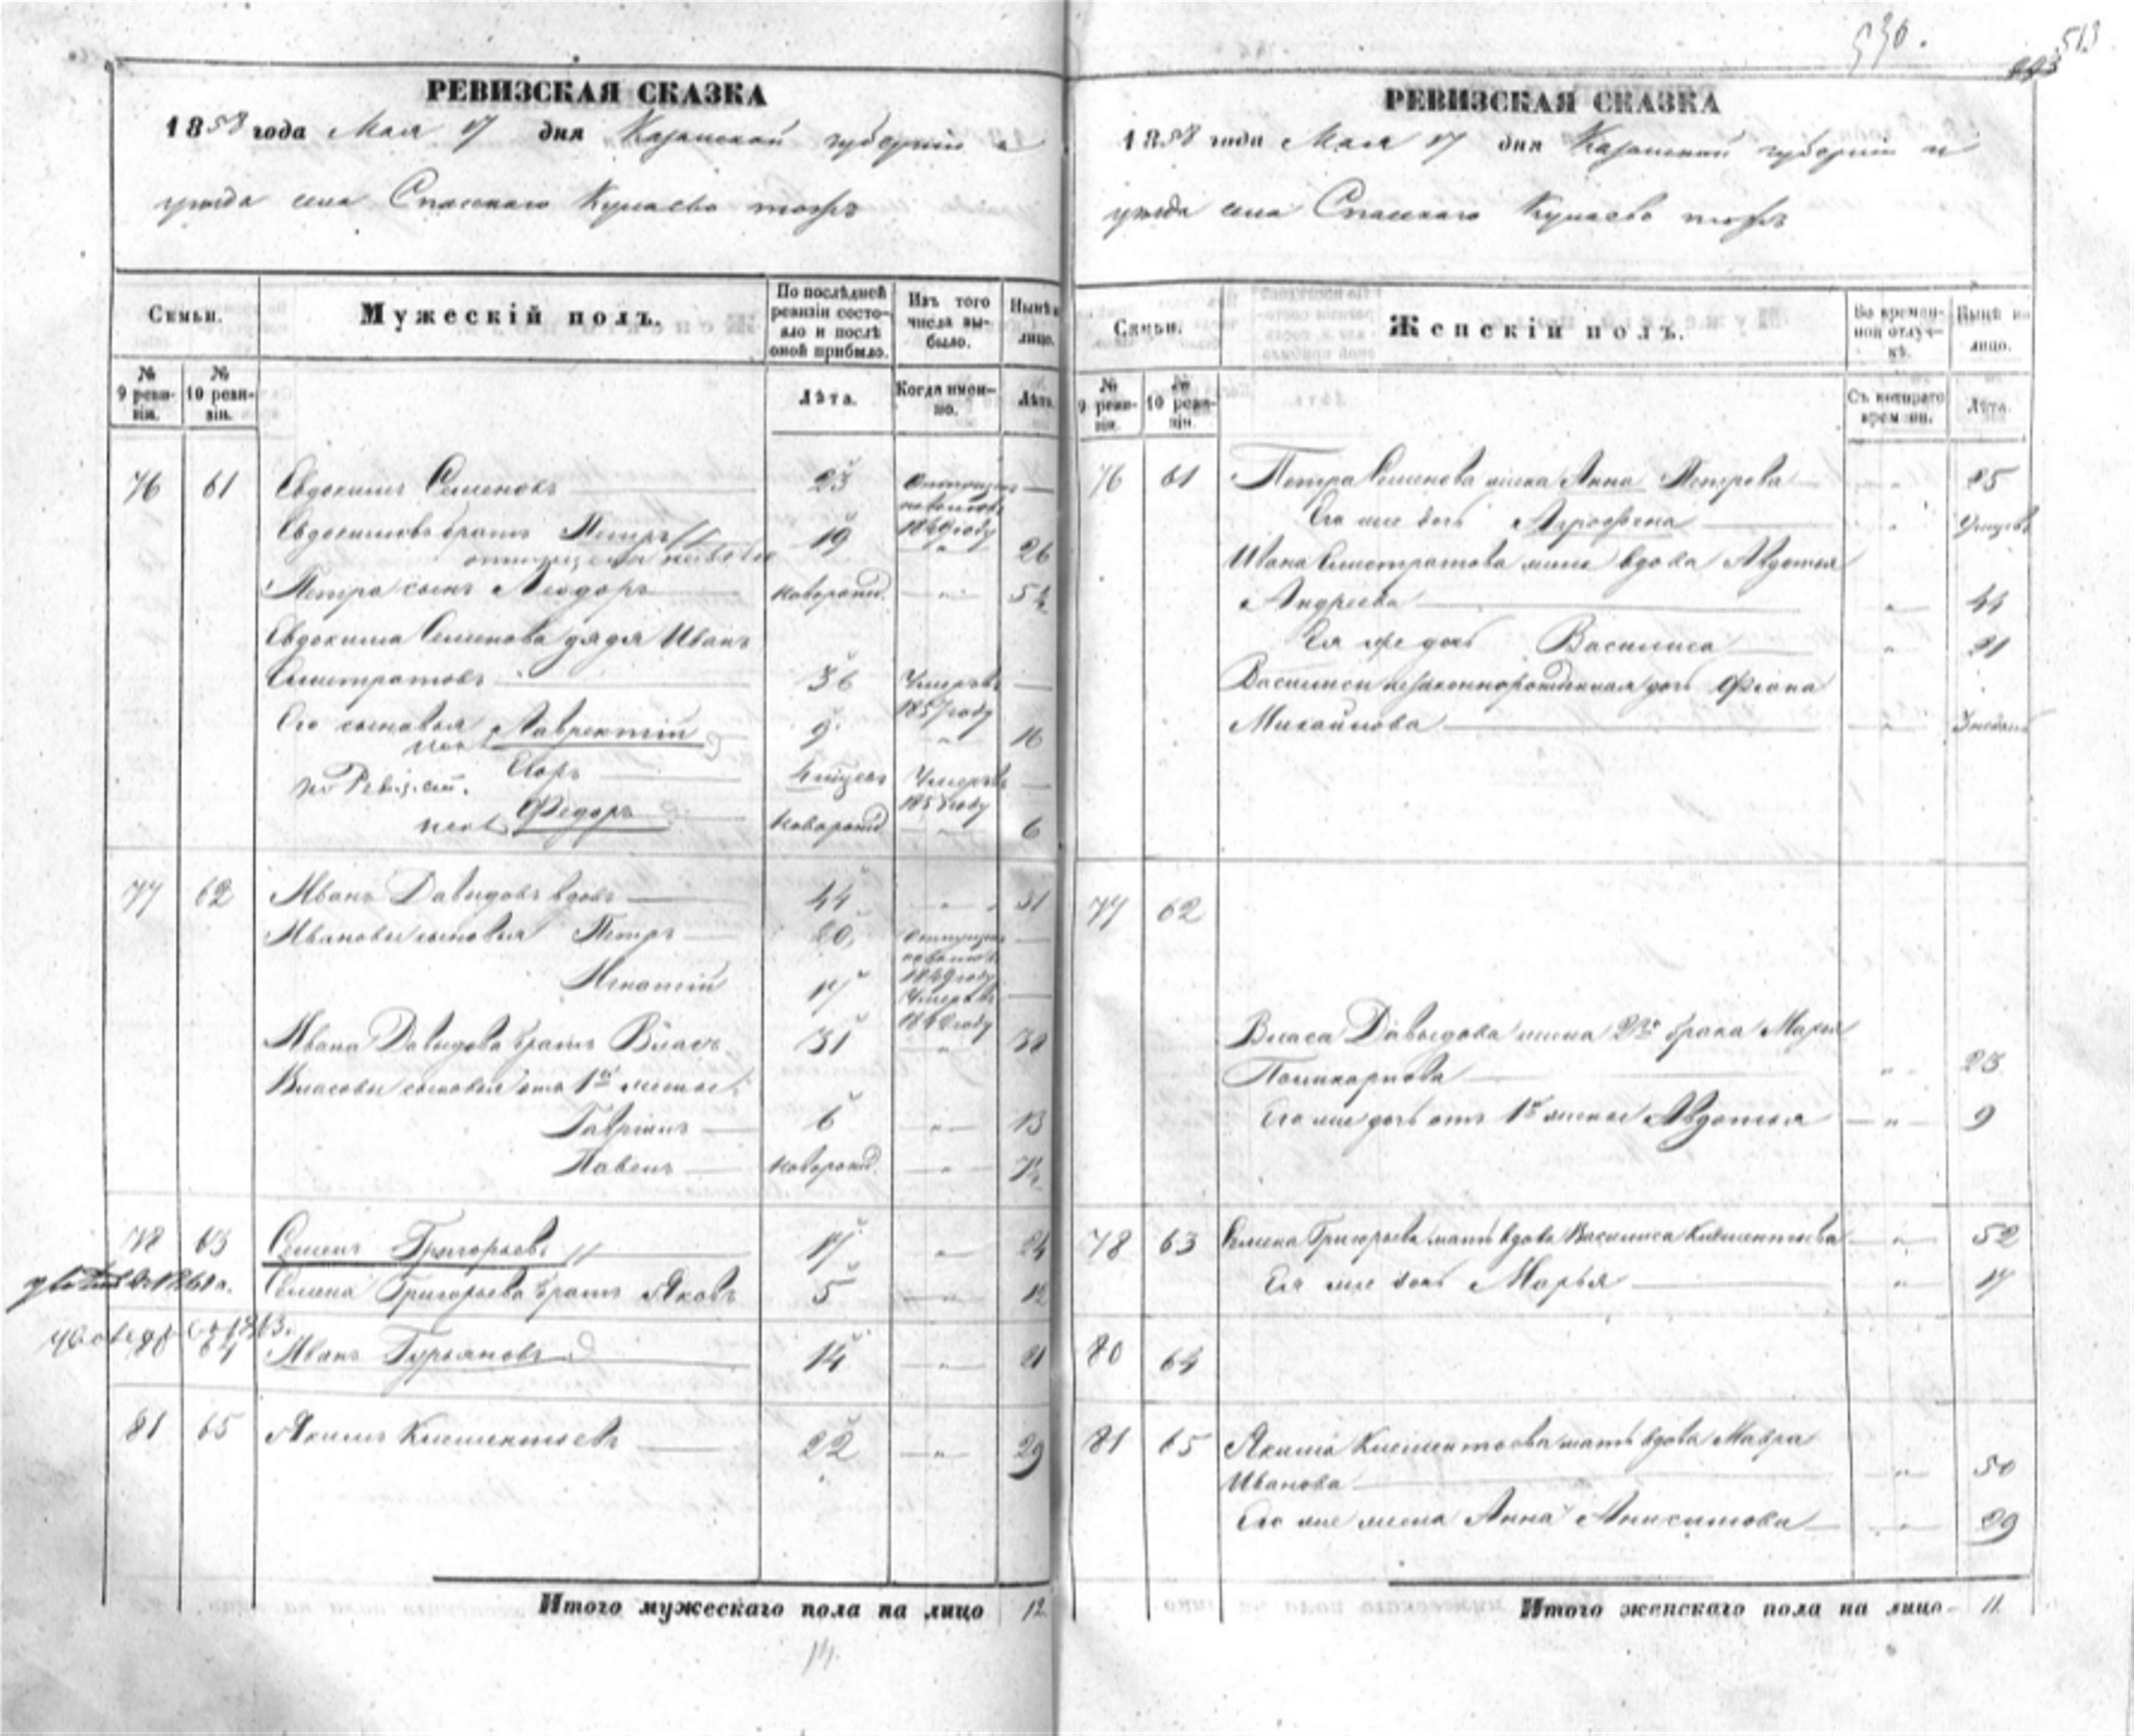 513
РЕВИЗСКАЯ СКАЗКА
1858 года Мая 17 дня Казанской губерніи и
уезда села Спасскаго Кунаево тожъ
Семьи.
Мужескій полъ.
По послѣдней ревизіи состояло и послѣ оной прибыло.
Изъ того числа выбыло.
Нынѣ на лицо.
№ 9 ревизіи.
№ 10 ревизіи.
Лѣта.
Когда именно.
Лѣта.
76 61 Евдокимъ Семеновъ 23
1849 году
Евдокимовъ братъ Петръ 19 " 26
Петра сынъ Новорожд. " 5½
Евдокима Семенова дядя Иванъ
36 Умеръ въ 1857 году
Его сыновья Лаврентій 9 " 16
Егоръ Умеръ въ
Федоръ Новорожд. " 6
77 62 Иванъ Давыдовъ вдовъ 44 " 51
Ивановы сыновья Петръ 20 1849 году
Игнатій 17 Умеръ въ
Ивана Давыдова братъ Власъ 31 " 38
Власовы сыновья отъ 1й жены
Гаврилъ 6 " 13
Павелъ Новорожд. " 7½
78 63 Семенъ Григорьевъ 17 " 24
Семена Григорьева братъ Яковъ 5 " 12
64 Иванъ Гурьяновъ 14 " 21
81 65 Якимъ Климентьевъ 22 " 29
Итого мужескаго пола на лицо 12
14
РЕВИЗСКАЯ СКАЗКА
1858 года Мая 17 дня Казанской губерніи и
уезда села Спасскаго Кунаево тожъ
Семьи.
Женскій полъ.
Во временной отлучкѣ.
Нынѣ на лицо.
№ 9 ревизіи.
№ 10 ревизіи.
Съ котораго времени.
Лѣта.
76 61 Петра Семенова жена Анна Петрова " 25
Его же дочь "
Ивана жена вдова Авдотья
Андреева " 44
Ея же дочь Василиса " 21
Василисы незаконнорожденная дочь
Михайлова "
77 62
Власа Давыдова жена 2го брака Марья
Поликарпова " 23
Его же дочь отъ 1й жены Авдотья " 9
78 63 Семена Григорьева мать вдова Василиса Климентьева " 52
Ея же дочь Марья " 17
80 64
81 65 Якима Климентьева мать вдова Мавра
Иванова " 50
Его же жена Анна Анисимова " 29
Итого женскаго пола на лицо 11